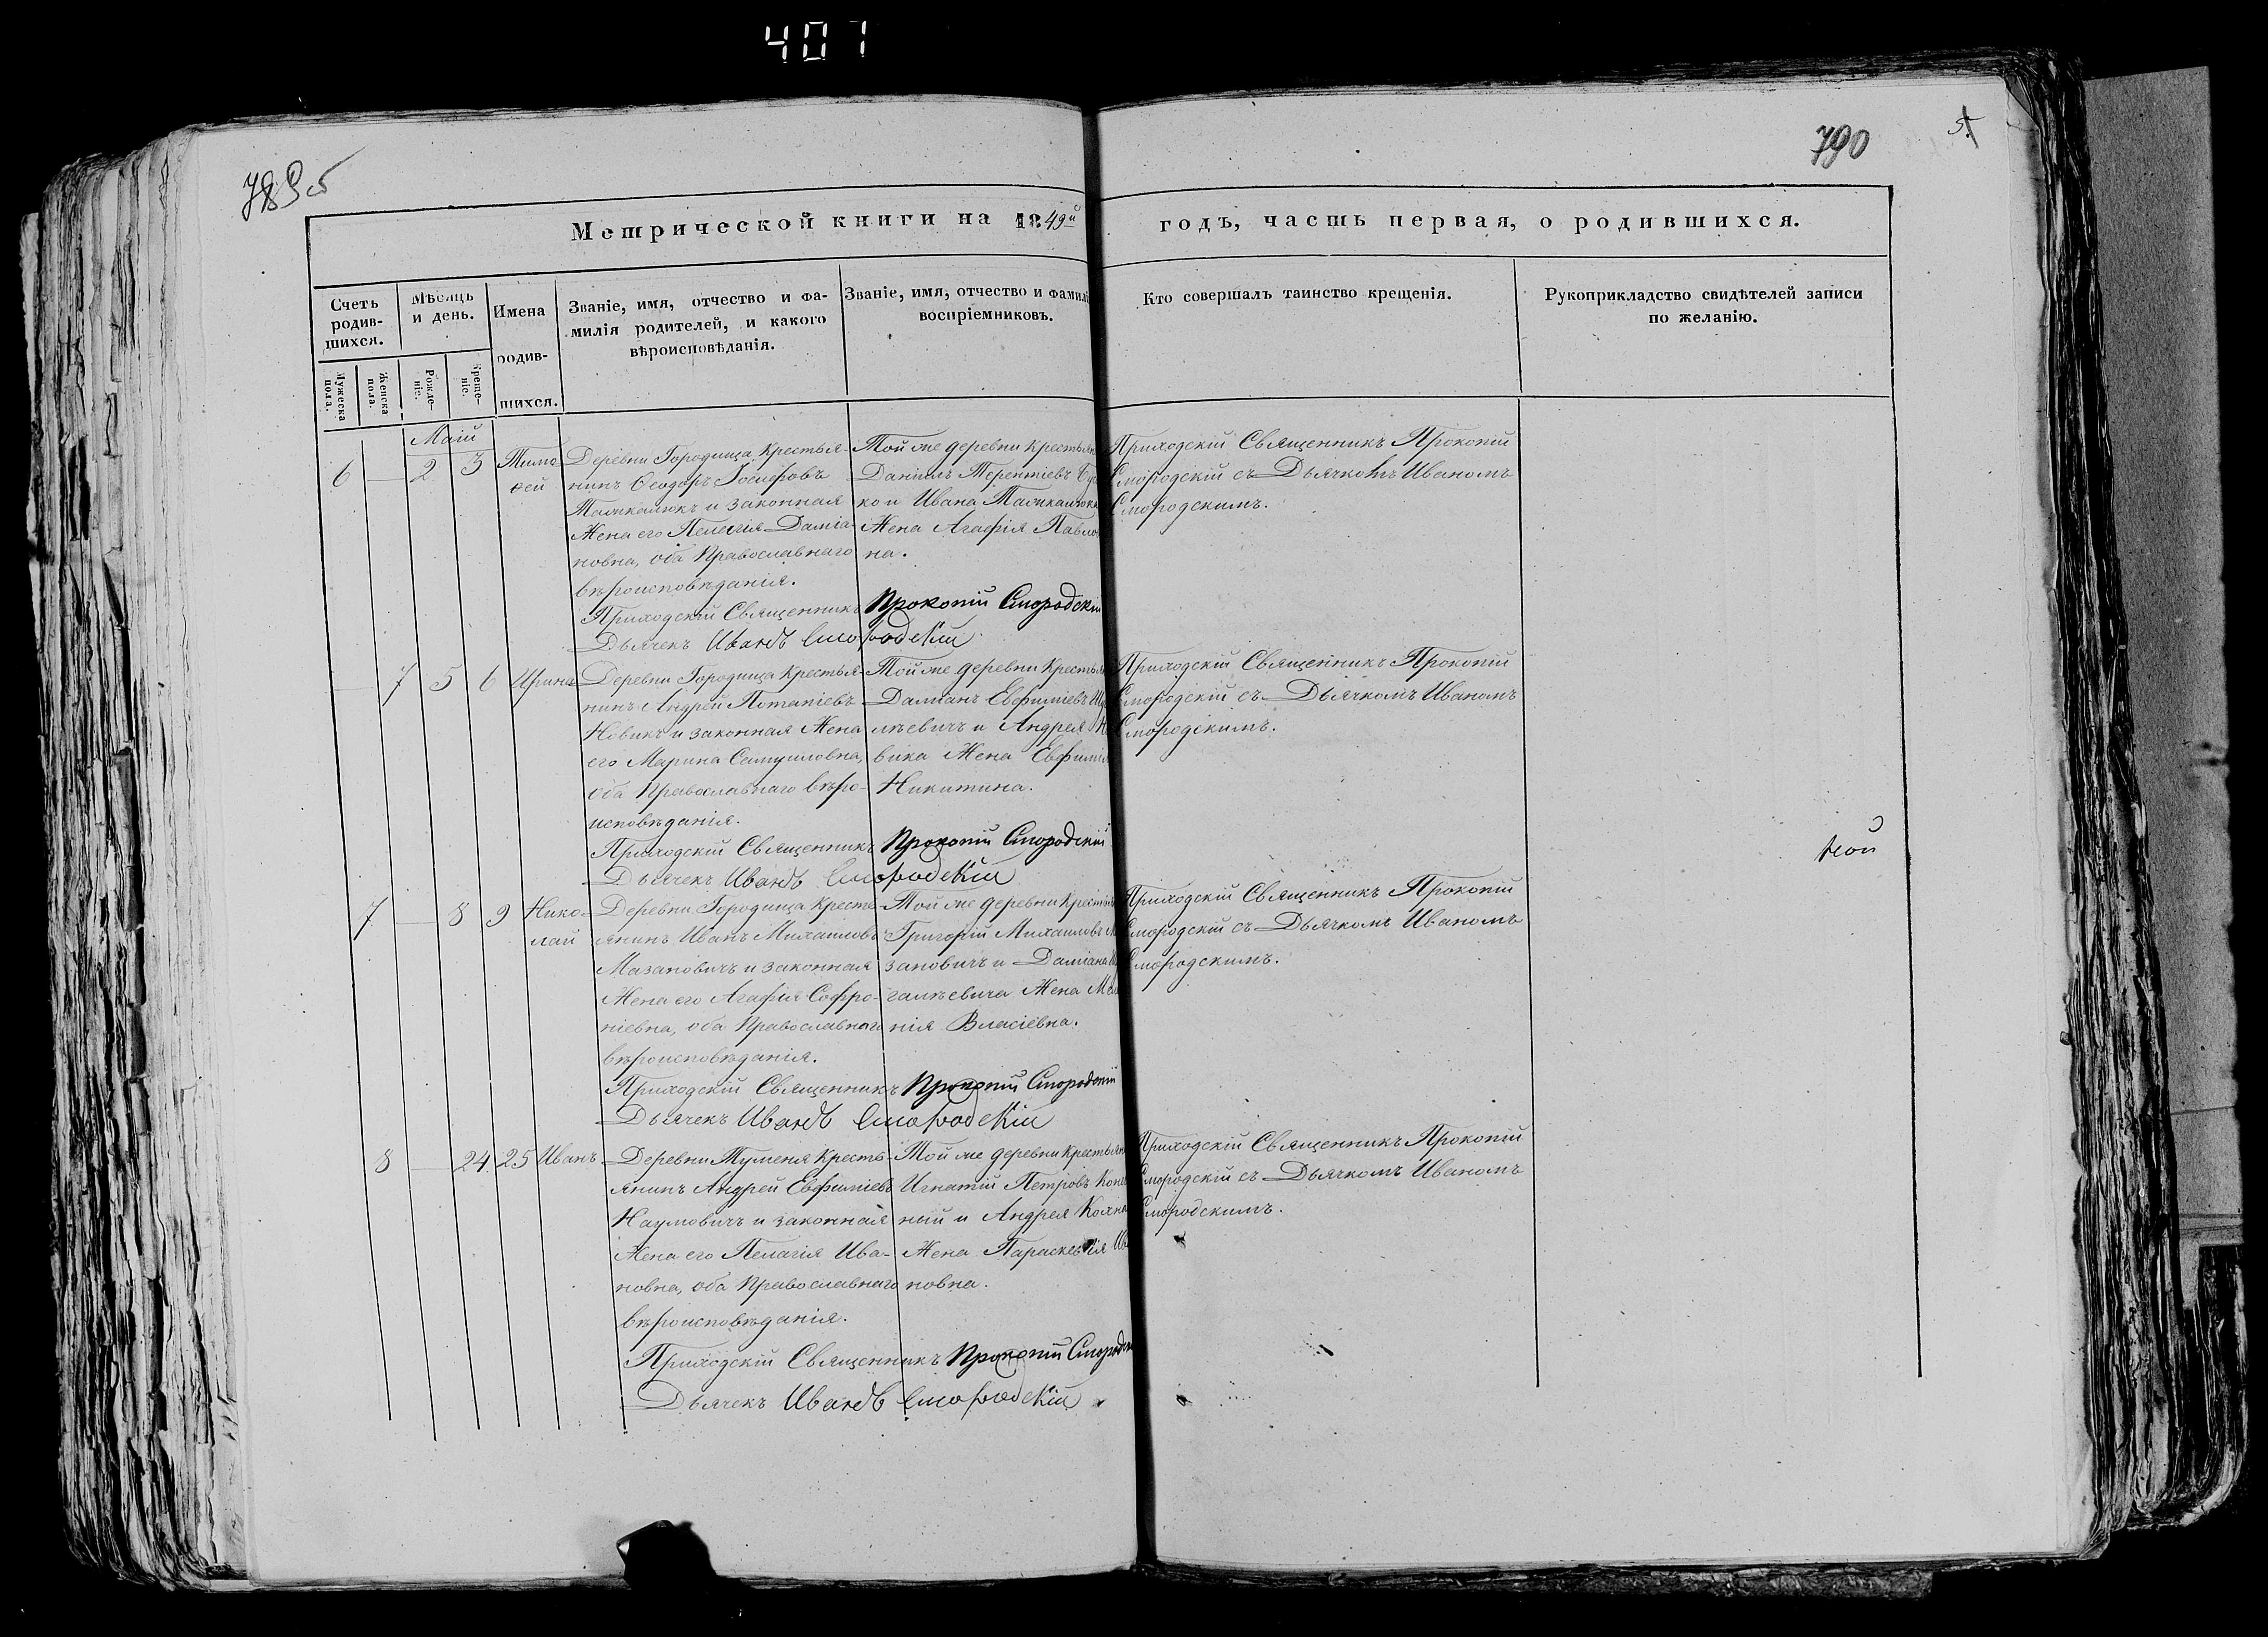 407
790
Метрической книги на 1849й годъ, часть первая, о родившихся.
Счетъ родившихся.
Мужеска пола.
Женска пола.
Мѣсяцъ и день.
Рожденіе.
Крещеніе.
Имена родившихся.
Званіе, имя, отчество и фамилія родителей, и какого вѣроисповѣданія.
Званіе, имя, отчество и фамилі воспріемниковъ.
Кто совершалъ таинство крещенія.
Рукоприкладство свидѣтелей записи по желанію.
Маій
6 — 2 3
Тимо
ѳей
Деревни Городища Крестья-
нинъ Ѳеодоръ Іосифовъ
и законная
Жена его Пелагія Даміа-
новна, оба Православнаго
вѣроисповѣданія.
Той же деревни Крестьян
Даніилъ Терентіевъ
ко и Ивана
Жена Агафія Павлов
на.
Приходскій Священникъ Прокопій
Смородскій съ Дьячкомъ Иваномъ
Смородскимъ.
Приходскій Священникъ Прокопій Смородскій
Дьячекъ Иванъ Смородскій
— 7 5 6
Ирина
Деревни Городища Крестья-
нинъ Андрей Потапіевъ
Новикъ и законная Жена
его Марина Самуиловна,
оба Православнаго вѣро-
исповѣданія.
Той же деревни Крестьян
Даміанъ Евфиміевъ
лѣевичъ и Андрея Но
вика Жена Евфимія
Никитина.
Приходскій Священникъ Прокопій
Смородскій съ Дьячкомъ Иваномъ
Смородскимъ.
Приходскій Священникъ Прокопій Смородскій
Дьячекъ Иванъ Смородскій
7 — 8 9
Нико-
лай
Деревни Городища Кресть-
янинъ Иванъ Михаиловъ
Мазановичъ и законная
Жена его Агафія Софро-
ніевна, оба Православнаго
вѣроисповѣданія.
Той же деревни Крестьян
Григорій Михаиловъ Ма
зановичъ и Даміана
галѣевича Жена Мела
нія Власіевна.
Приходскій Священникъ Прокопій
Смородскій съ Дьячкомъ Иваномъ
Смородскимъ.
Приходскій Священникъ Прокопій Смородскій
Дьячекъ Иванъ Смородскій
8 — 24 25
Иванъ
Деревни Туменя Кресть-
янинъ Андрей Евфиміевъ
Наумовичъ и законная
Жена его Пелагія Ива-
новна, оба Православнаго
вѣроисповѣданія.
Той же деревни Крестьян
Игнатій Петровъ
ный и Андрея
Жена Параскевія Ива
новна.
Приходскій Священникъ Прокопій
Смородскій съ Дьячкомъ Иваномъ
Смородскимъ.
Приходскій Священникъ Прокопій Смородскі
Дьячекъ Иванъ Смородскій